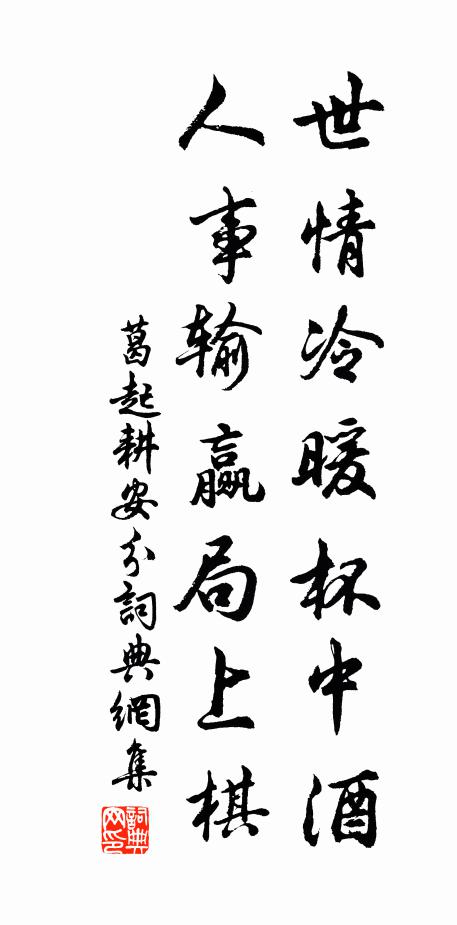 世情冷暖杯中酒
人事输赢局上棋
葛起耕安分詞典網集
詞典
网印